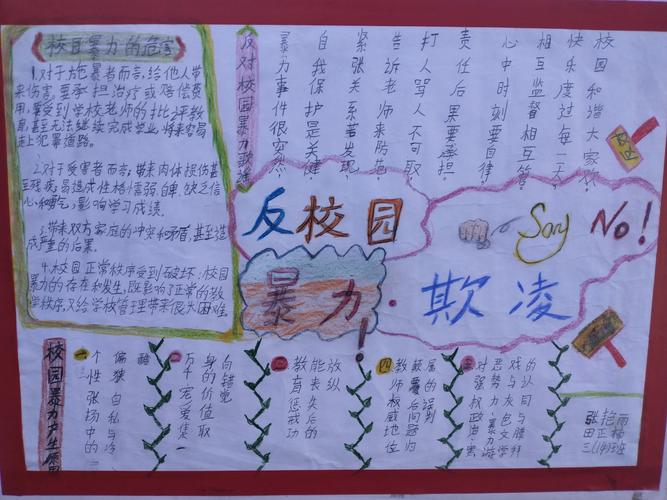 校园暴力的危害
1.对于施暴者而言,给他人带
来伤害,要承担治疗或赔偿费
用,要受到学校老师的批评教
育,甚至无法继续完成学业,将来容易
走上犯罪道路。
2.对于受害者而言,带来肉体损伤甚
至残疾,易造成性格懦弱自卑,缺乏信
心和勇气,影响学习成绩。
3.带来双方家庭的冲突和矛盾,甚至造
成严重的后果。
4.校园正常秩序受到破坏:校园
暴力的存在和发生,既影响了正常的教
学秩序,又给学校管理带来很大困难。
反对校园暴力歌谣
校园和谐大家欢,
快乐度过每一天。
相互监督相互管,
心中时刻要自律。
责任后果要承担。
打人骂人不可取
告诉老师来防范。
紧张关系看发现,
自我保护是关键。
暴力事件很突然
反校园
暴力!
Say No!
欺凌
校园暴力产生原因
一
个性张扬中的
偏狭自私与冷
酷
二
万千宠爱集一
身的价值取
向错觉
三
教育惩戒功
能丧失后的
放纵
四
教师权威地位
颠覆后问题归
属的误判
五
对强权政治、黑
恶势力、暴力游
戏与灰色文学
的认同与膜拜
张艳雨
田正楠
三(14)班